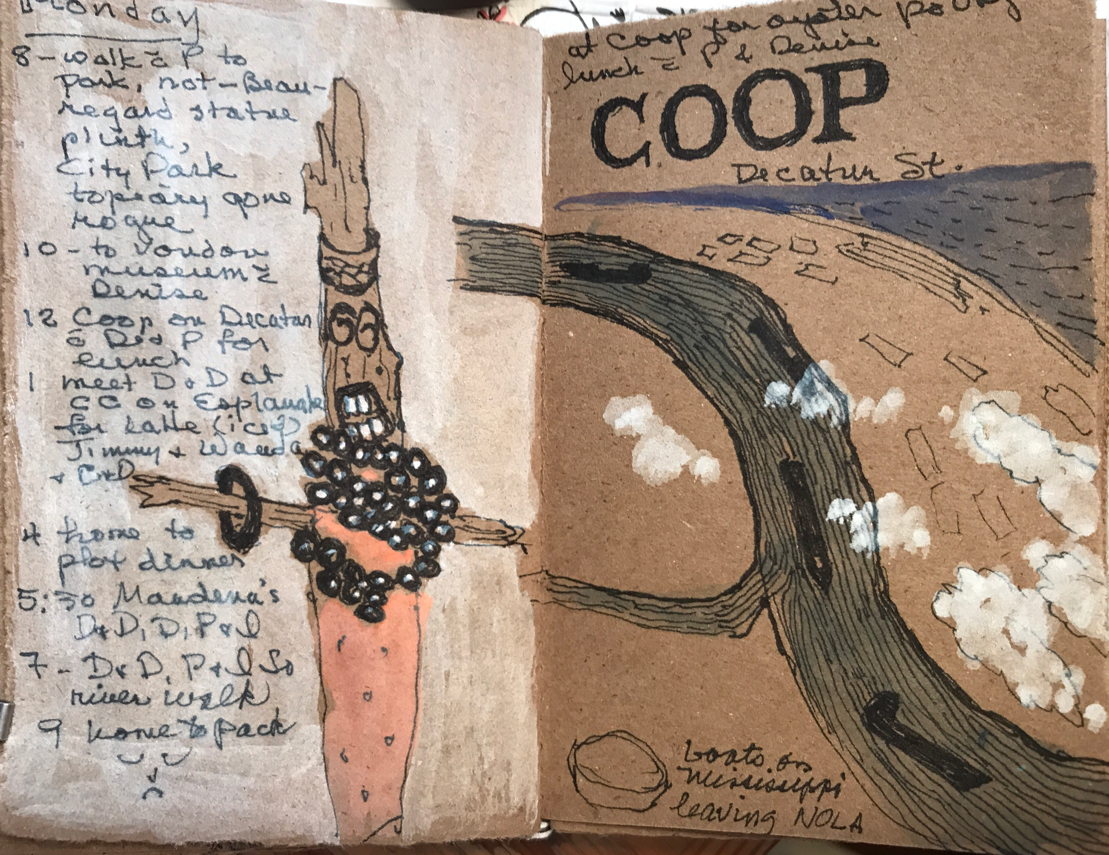 Monday
8 - walk c̄ P to
park, not-Beau-
regard statue
plinth,
City Park
topiary gone
rogue
10 - to Voudou
museum c̄
Denise
12 Coop on Decatur
c̄ D & P for
lunch
1 meet D & D at
CC on Esplanade
for latte (iced)
Jimmy & Wanda
+ B & D
4 home to
plot dinner
5:30 Mandena's
D & D, D, P & I
7 - D & D, P & I to
river walk
9 home to pack
at Coop for oyster poboy
lunch c̄ P & Denise
COOP
Decatur St.
boats on
Mississippi
leaving NOLA